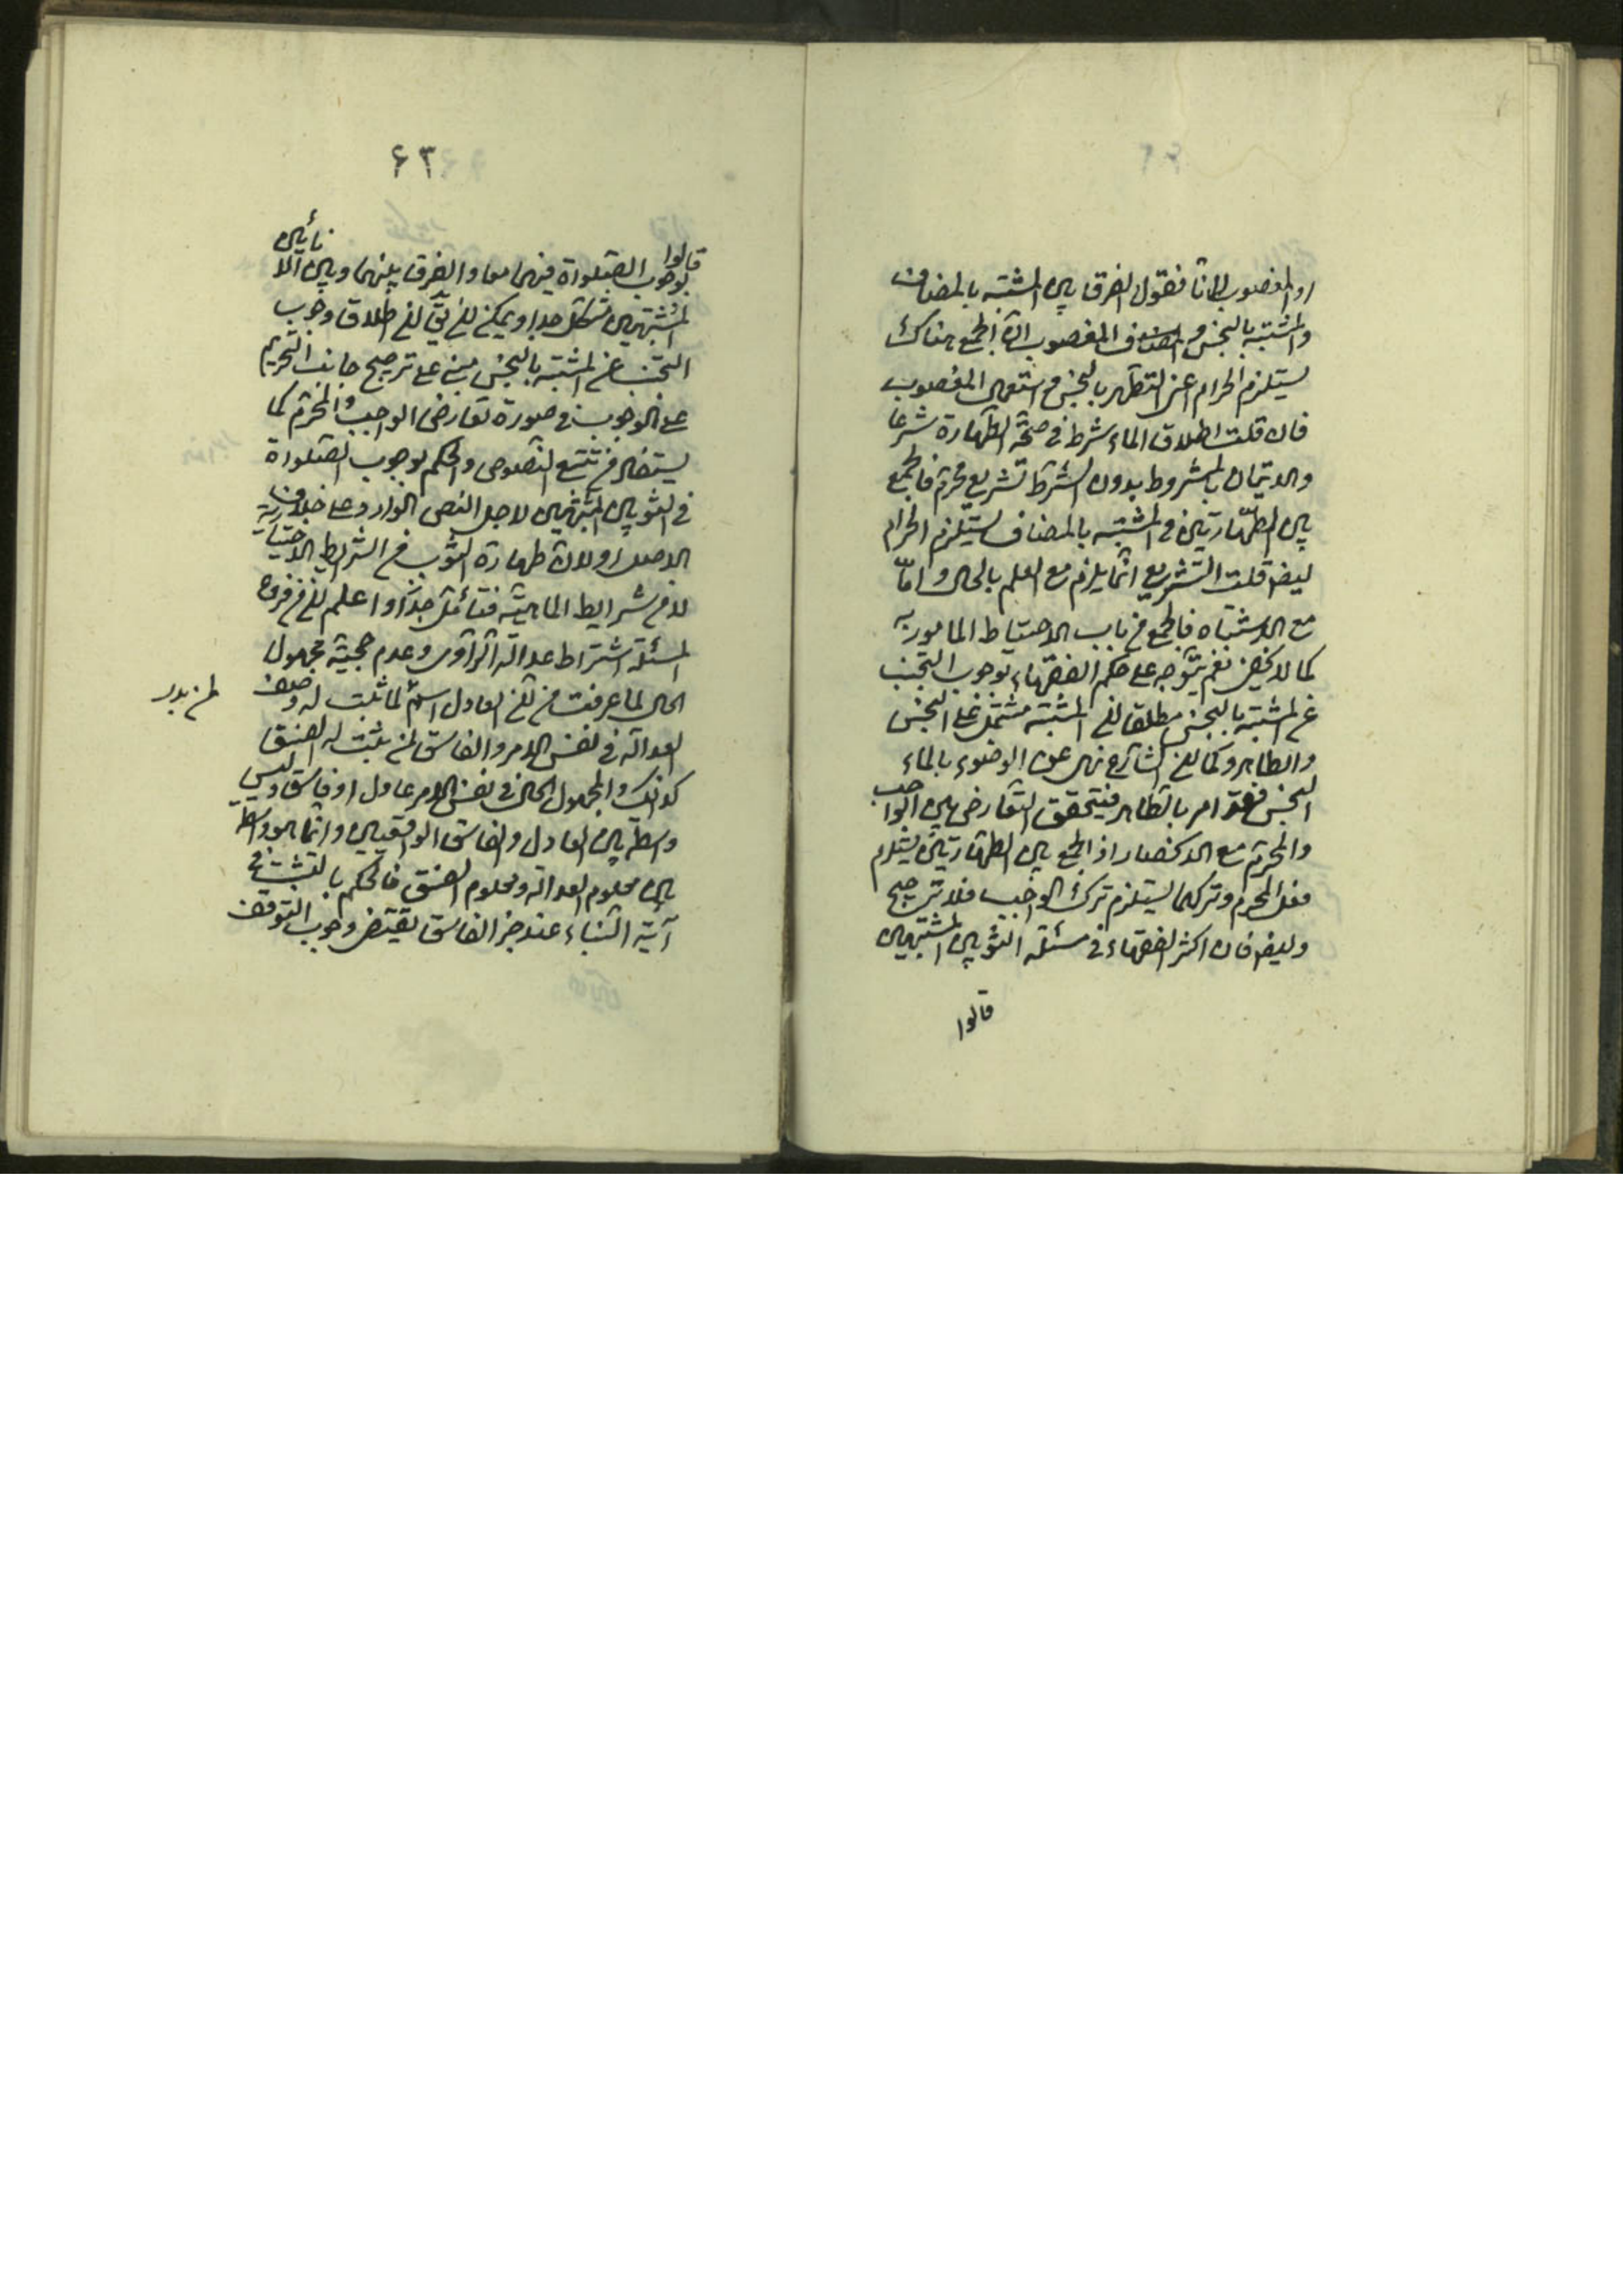 او المغصوب لانا فنقول الفرق بين المشتبه بالمضاف
والمشتبه بالنجس و المغصوب ان الجمع هناك
يستلزم الحرام اعنى التطهر بالنجس و استعمال المغصوب
فان قلت اطلاق الماء شرط فى صحة الطهارة شرعا
والاتيان بالمشروط بدون الشرط تشريع محرم فالجمع
بين الطهارتين فى المشتبه بالمضاف يستلزم الحرام
ايضا قلت التشريع انما يلزم مع العلم بالحال و امّا
مع الاشتباه فالجمع من باب الاحتياط المامور به
كما لا يخفى نعم يتوجه على حكم الفقهاء بوجوب التجنب
عن المشتبه بالنجس مطلقا ان المشتبه مشتمل على النجس
والطاهر وكما ان الشارع نهى عن الوضوء بالماء
النجس فقد امر بالطاهر فيتحقق التعارض بين الواجب
والمحرم مع الانحصار اذ الجمع بين الطهارتين يستلزم
فعل المحرم وتركهما يستلزم ترك الواجب فلا ترجيح
وايضا فان اكثر الفقهاء فى مسئلة الثوبين المشتبهين
قالوا
۶۳
قالوا بوجوب الصلوة فيهما معا و الفرق بينهما وبين الانائين
المشتبهين مشكل جدا ويمكن ان يق ان اطلاق وجوب
التجنب عن المشتبه بالنجس مبنى على ترجيح جانب التحريم
على الوجوب فى صورة تعارض الواجب والمحرم كما
يستفاد من تتبع النصوص والحكم بوجوب الصلوة
فى الثوبين المشتبهين لاجل النص الوارد على خلاف
الاصل او لان طهارة الثوب من الشرايط الاختيارية
لا من شرايط الماهية فتامل جدّا و اعلم ان من فروع
المسئلة اشتراط عدالة الراوى وعدم حجية مجهول
الحال لما عرفت من ان العادل اسم لما ثبت له وصف
العدالة فى نفس الامر و الفاسق لمن يثبت له الفسق
كذلك و المجهول الحال فى نفس الامر عادل او فاسق وليس
واسطة بين العادل والفاسق الواقعيين و انما هو واسطة
بين معلوم العدالة ومعلوم الفسق فالحكم بالتثبت فى
آية النباء عند خبر الفاسق يقتضى وجوب التوقف